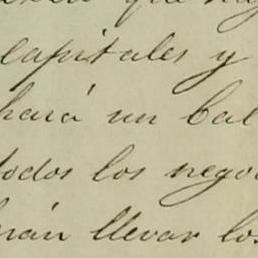 capitales y
hará un bal
todos los nego
rán llevar los